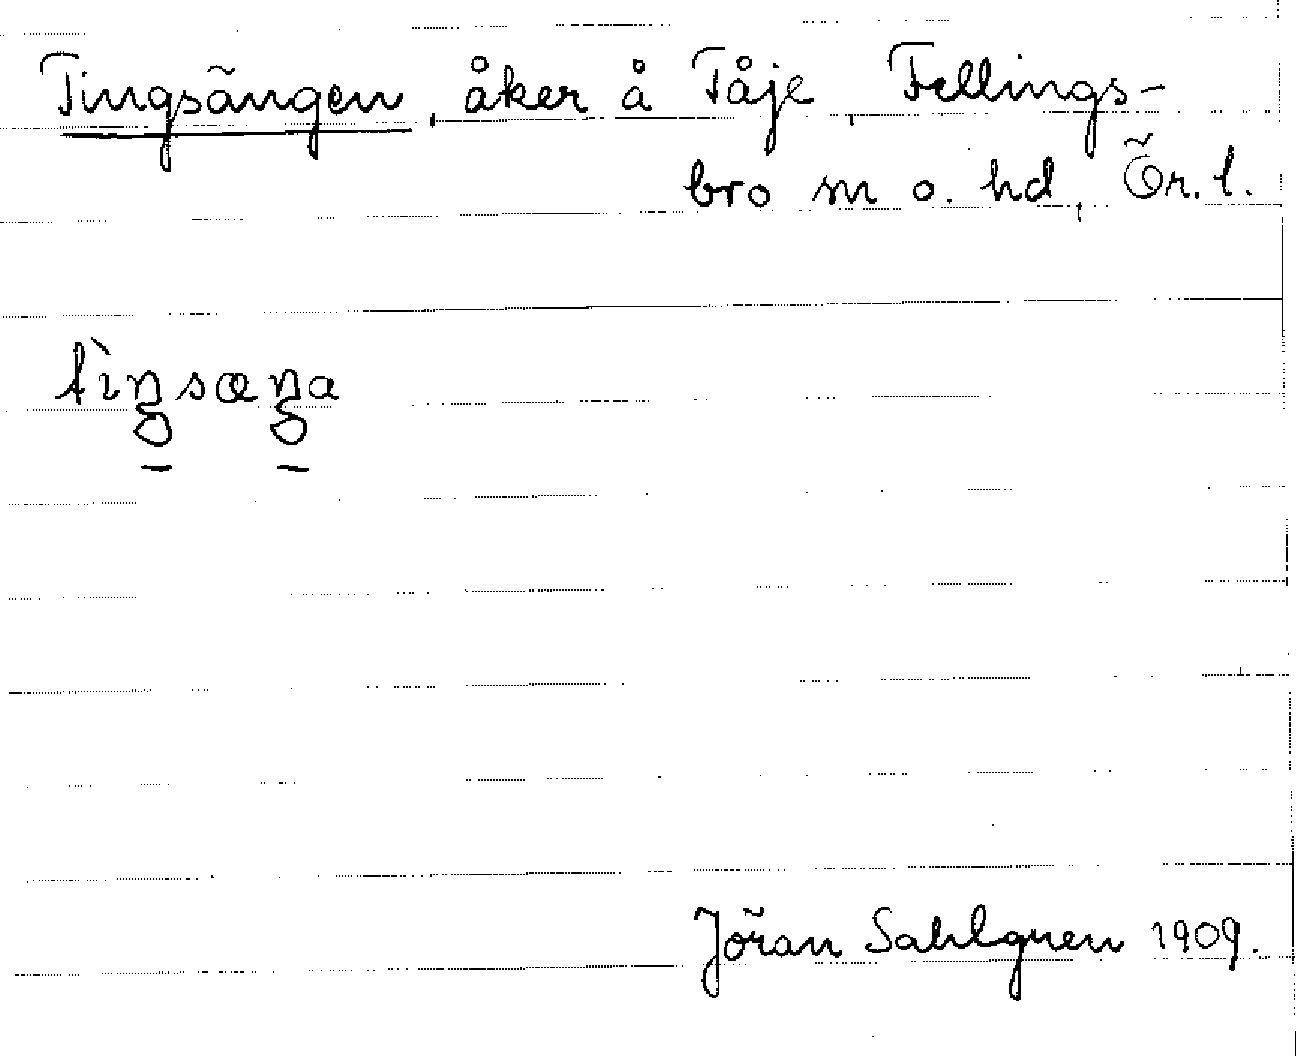 Tingsängen, åker å Tåje, Fellings-
bro sn o. hd, Ör. l.
tìŋsæŋa
Jöran Sahlgren 1909.